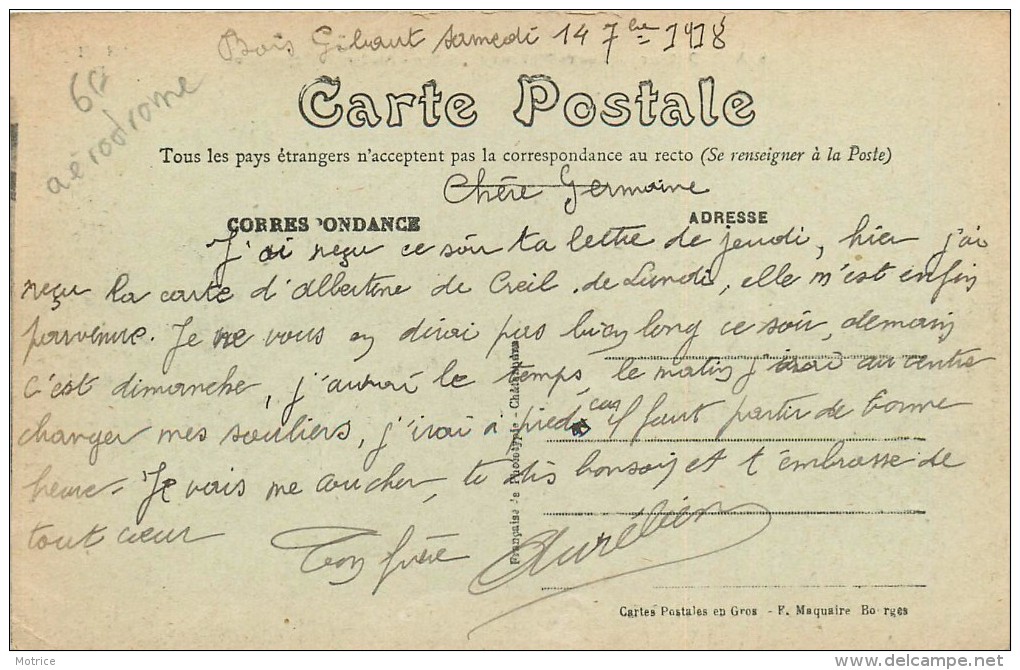 Bois Gibaut samedi 14 7bre 1918
60
aérodrome
Carte Postale
Tous les pays étrangers n'acceptent pas la correspondance au recto (Se renseigner à la Poste)
Chère Germaine
CORRESPONDANCE
ADRESSE
J'ai reçu ce soir ta lettre de jeudi, hier j'ai
reçu la carte d'Albertine de Creil de Lundi, elle m'est enfin
parvenue. Je ne vous en dirai pas bien long ce soir, demain
c'est dimanche, j'aurai le temps, le matin j'irai au centre
changer mes souliers, j'irai à pied car il faut partir de bonne
heure. Je vais me coucher, te dis bonsoir et t'embrasse de
tout cœur
Ton frère Aurélien
Française de Phototypie - Châteauroux
Cartes Postales en Gros - F. Maquaire Bourges
Motrice
delcampe.net